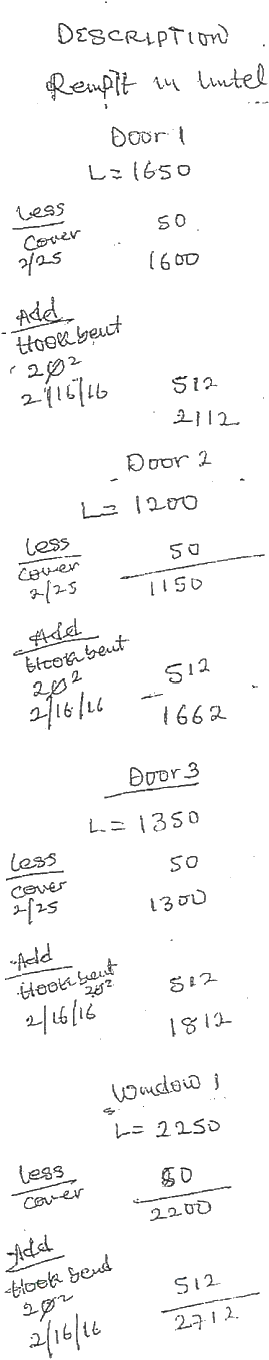 DESCRIPTION
Reinft in lintel
Door 1
L= 1650
Less 50
Cover
2/25 1600
Add
Hook bent
2Ø²
2/16/16 512
2112
Door 2
L= 1200
Less 50
Cover
2/25 1150
Add
Hook bent
2Ø² 512
2/16/16 1662
Door 3
L= 1350
Less 50
Cover
2/25 1300
Add
Hook bent
2Ø² 512
2/16/16 1812
Window 1
L= 2250
Less 50
Cover 2200
Add
Hook bend
2Ø² 512
2/16/16 2712